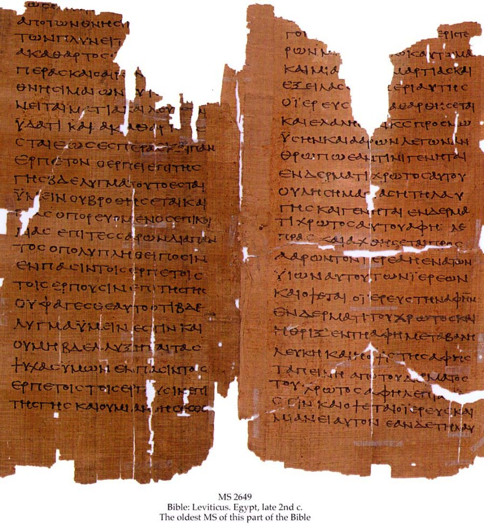 ΑΠΟΤΩΝΘΝΗϹΙ
ΤΩΝΠΛΥΝΕΙΤ
ΑΚΑΘΑΡΤΟϹ
ΠΕΡΑϹΚΑΙΟΑΙ
ΘΝΗϹΙΜΑΙΩΝ
ΝΕΙΤΑΙΜΑΤΙΑΚΑΙΛΟΥ
ΫΔΑΤΙ ΚΑΙ ΑΚΑΘΑΡ
ϹΤΑΙΕΩϹΕϹΠΕΡΑϹΚΑΙΠΑΝ
ΕΡΠΕΤΟΝ ΟΕΡΠΕΙΕΠΙΤΗϹ
ΓΗϹΒΔΕΛΥΓΜΑΤΟΥΤΟΕϹΤΑΙ
ΫΜΕΙΝΟΥΒΡΩΘΗϹΕΤΑΙΚΑΙ
ΑϹΟΠΟΡΕΥΟΜΕΝΟϹΕΠΙΚΟΙ
ΛΙΑϹ ΕΠΙΤΕϹϹΑΡΩΝΔΙΑΠΑΝ
ΤΟϹ ΟΠΟΛΥΠΛΗΘΕΙΠΟϹΙΝ
ΕΝΠΑϹΙΝΤΟΙϹΕΡΠΕΤΟΙϹ
ΤΟΙϹΕΡΠΟΥϹΙΝΕΠΙΤΗϹΓΗϹ
ΟΥΦΑΓΕϹΘΕΑΥΤΟΟΤΙΒΔΕ
ΛΥΓΜΑΫΜΕΙΝΕϹΤΙΝΚΑΙ
ΟΥΜΗΒΔΕΛΥΞΗΤΑΙΤΑϹ
ΨΥΧΑϹΥΜΩΝΕΝΠΑϹΙΝΤΟΙϹ
ΕΡΠΕΤΟΙϹΤΟΙϹΕΡΠΟΥϹΙΝΕΠΙ
ΤΗϹΓΗϹ ΚΑΙΟΥΜΙΑΝΘΗϹΕϹΘΕ
ΚΑΙΜΙΑ ΜΑΡΤΙΑϹΚΑΙ
ΕΞΕΙΛΑϹ ΠΕΡΙΑΥΤΗϹ
ΟΪΕΡΕΥϹ ΚΑΘΑΡΘΗϹΕΤΑΙ
ΚΑΙΕΛΑΛΗ ΚϹΠΡΟϹΜΩ
ΫϹΗΝΚΑΙΑΑΡΩΝΛΕΓΩΝΑΝ
ΘΡΩΠΩΕΑΝΤΙΝΙΓΕΝΗΤΑΙ
ΕΝΔΕΡΜΑΤΙΧΡΩΤΟϹΑΥΤΟΥ
ΟΥΛΗϹΗΜΑϹΙΑϹΤΗΛΑΥΓ
ΓΗϹ ΚΑΙΓΕΝΗΤΑΙΕΝΔΕΡΜΑ
ΤΙΧΡΩΤΟϹΑΥΤΟΥΑΦΗ ΛΕ
ΠΡΑϹ ΚΑΙΑΧΘΗϹΕΤΑΙΠΡΟϹ
ΑΑΡΩΝΤΟΝΪΕΡΕΑΗΕΝΑΤΩΝ
ΫΙΩΝΑΥΤΟΥΤΩΝΪΕΡΕΩΝ
ΚΑΙΟΨΕΤΑΙΟΪΕΡΕΥϹΤΗΝΑΦΗΝ
ΕΝΔΕΡΜΑΤΙΤΟΥΧΡΩΤΟϹΚΑΙ
ΗΘΡΙΞΕΝΤΗΑΦΗΜΕΤΑΒΑΛΗ
ΛΕΥΚΗ ΚΑΙΗΟΨΙϹΤΗϹΑΦΗϹ
ΤΑΠΕΙΝΗ ΑΠΟΤΟΥΔΕΡΜΑΤΟϹ
ΤΟΥ ΧΡΩΤΟϹΑΦΗΛΕΠΡΑ
ϹΤΙΝ ΚΑΙΟΨΕΤΑΙΟΪΕΡΕΥϹΚΑΙ
ΜΙΑΝΕΙΑΥΤΟΝ ΕΑΝΔΕΤΗΛΑΥ
MS 2649
Bible: Leviticus. Egypt, late 2nd c.
The oldest MS of this part of the Bible